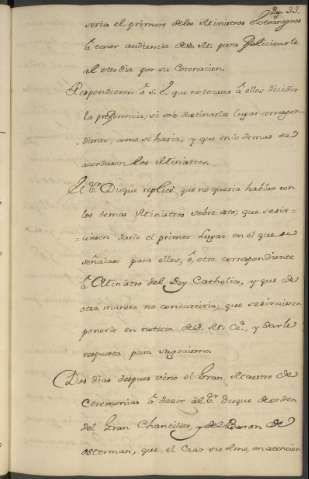 Pag. 33.
seria el primero delos Ministros Extrangeros
à tener audiencia de S. M. para felicitarle
al otro dia por su Coronacion.
Respondieron à S. E. que no tocava à ellos decidir
la presidencia, si solo destinarles lugar correspon-
diente, como se haria, y que en lo demas se
acordassen los Ministros.
El Duque replicò, que no queria hablar con
los demas Ministros sobre esto; que se sir-
viessen darle el primer lugar en el que se
señalase para ellos, ò, otro correspondiente
à Ministro del Rey Catholico, y que de
otra manera no concurriria; que se sirviessen
ponerlo en noticia de S. M. Cª. y darle
respuesta para su govierno.
Dos dias despues vino el Gran Maestro de
Ceremonias à decir al Duque de orden
del Gran Chanciller, y del Baron de
Osterman, que el Czar su Amo, en atencion